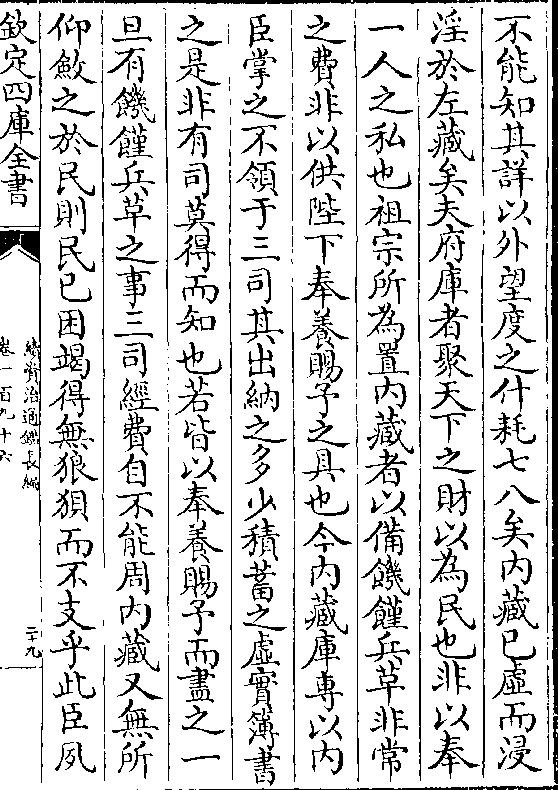 不能知其詳以外望度之什耗七八矣内藏已虚而浸
淫於左藏矣夫府庫者聚天下之財以為民也非以奉
一人之私也祖宗所為置内藏者以備饑饉兵革非常
之費非以供陛下奉養賜予之具也今内藏庫専以内
臣掌之不領于三司其出納之多少積蓄之虚實簿書
之是非有司莫得而知也若皆以奉養賜予而盡之一
旦有饑饉兵革之事三司經費自不能周内藏又無所
仰斂之於民則民已困竭得無狼狽而不支乎此臣夙
欽定四庫全書
續資治通鑑長編
卷一百九十六
二十九